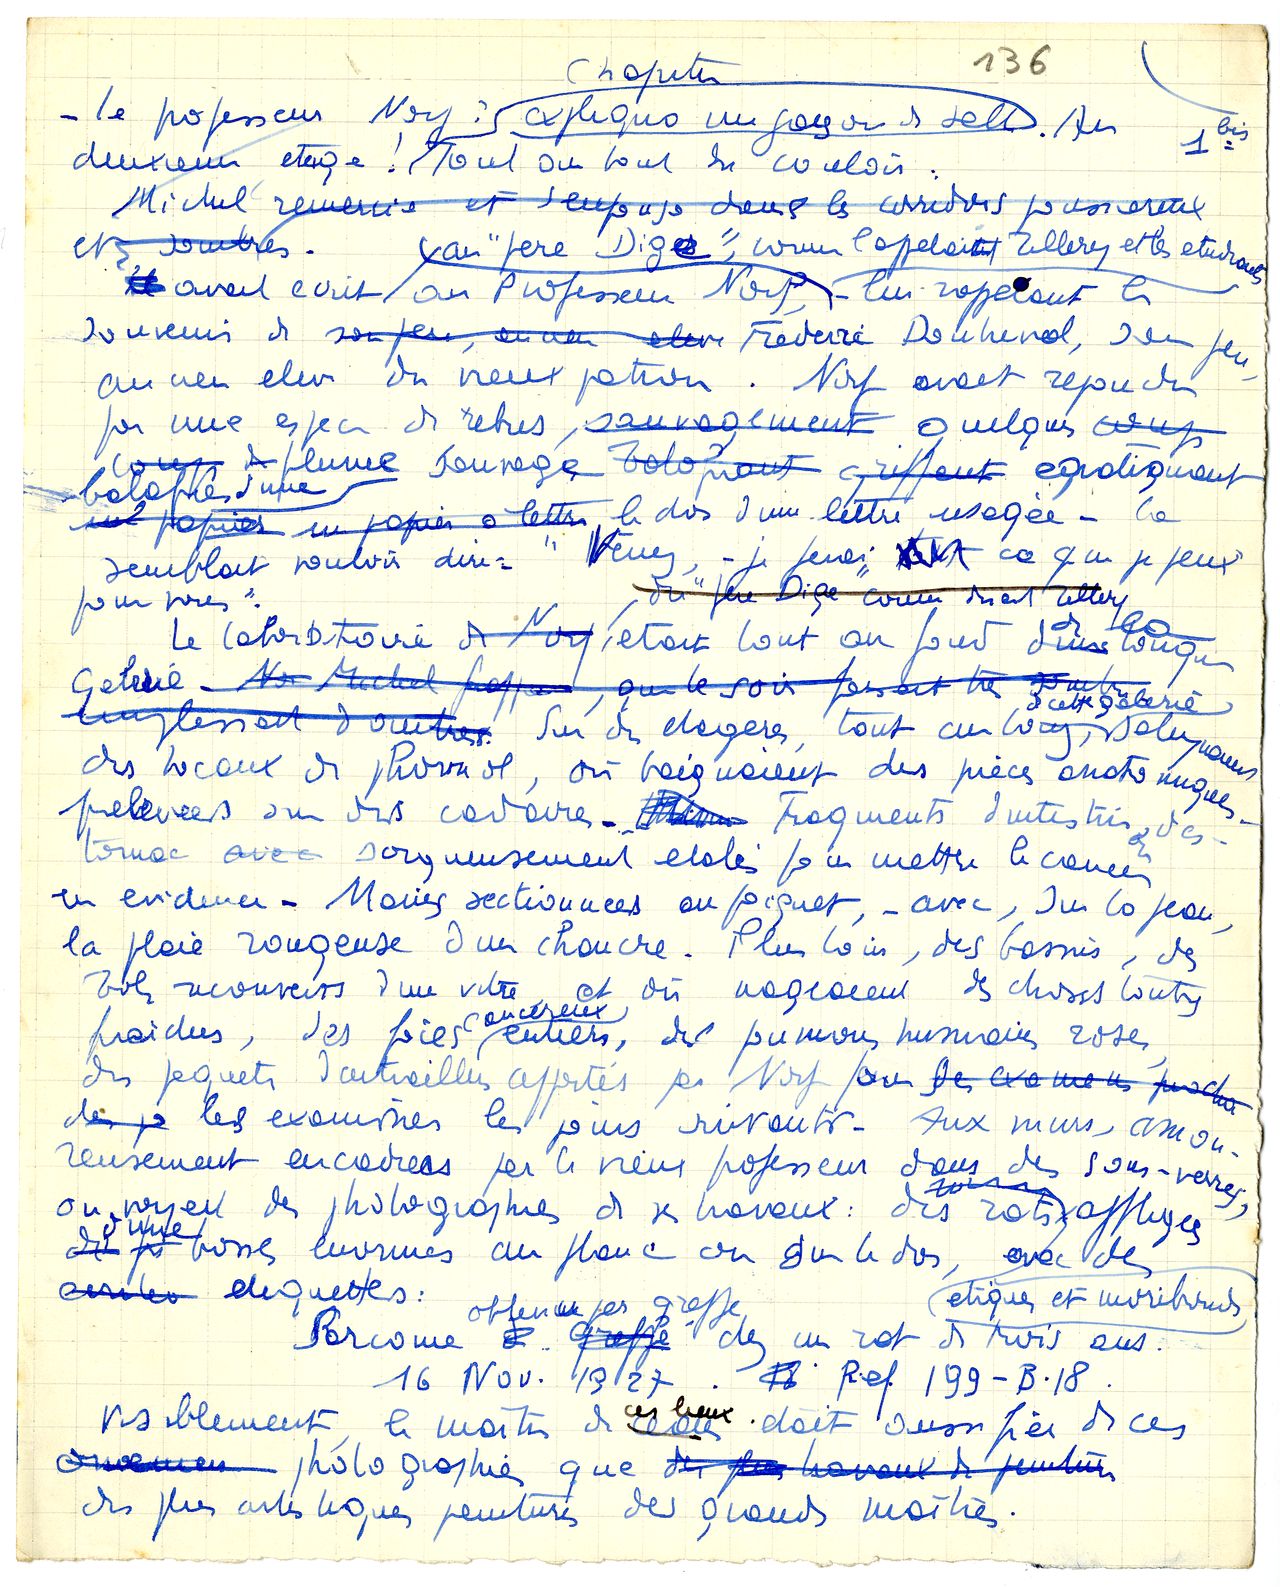 Chapitre
136
1 bis
- Le professeur Norf ? expliqua un garçon de salle. Au
deuxième étage ! Tout au bout du couloir.
Michel remercia et s'engagea dans les corridors poussiéreux
et sombres.
(au "père Dige", comme l'appelait Tillery et les étudiants
Il avait écrit au Professeur Norf, - lui rappelant le
souvenir de son père, ancien élève Frédéric Doutreval, son père,
ancien élève du vieux patron. Norf avait répondu
par une espèce de rébus, sauvagement quelques coups
coups de plume sauvage balafrant griffant égratignant
balafrés d'une
sur papier un papier à lettre le dos d'une lettre usagée - ça
semblait vouloir dire : "Venez, - je ferai ce que je peux
pour vous".
du "père Dige" comme disait Tillery
Le laboratoire de Norf, était tout au fond d'une longue
de la
Galerie - Michel que le soir faisait très sombre
emplissait d'ombres. Sur des étagères, tout au long,
d'cette galerie
s'alignaient
des bocaux de phormol, où baignaient des pièces anatomiques -
prélevées sur des cadavres - Fragments d'intestins, d'es-
tomac avec soigneusement étalés pour mettre le cancer
en évidence - Mains sectionnées au poignet, - avec, sur la peau,
la plaie rongeuse d'un chancre. Plus loin, des bassins, des
bols recouverts d'une vitre et où nageaient des choses toutes
cancéreux
fraîches, des foies entiers, des poumons humains roses,
des paquets d'entrailles apportés par Norf pour des examens
les examiner les jours suivants - Aux murs, amou-
reusement encadrées par le vieux professeur dans des sous-verres,
on voyait des photographies de ses travaux : des rats affligés
d'une
bosses énormes au flanc ou sur le dos, avec des
étiquettes :
étiques et moribonds
obtenu par greffe
Sarcome greffé chez un rat de trois ans.
16 Nov. 1927. Ref 199 - B.18.
Visiblement, le maître de ces lieux était aussi fier de ces
photographies que des travaux de peintures
des plus artistiques peintures des grands maîtres.